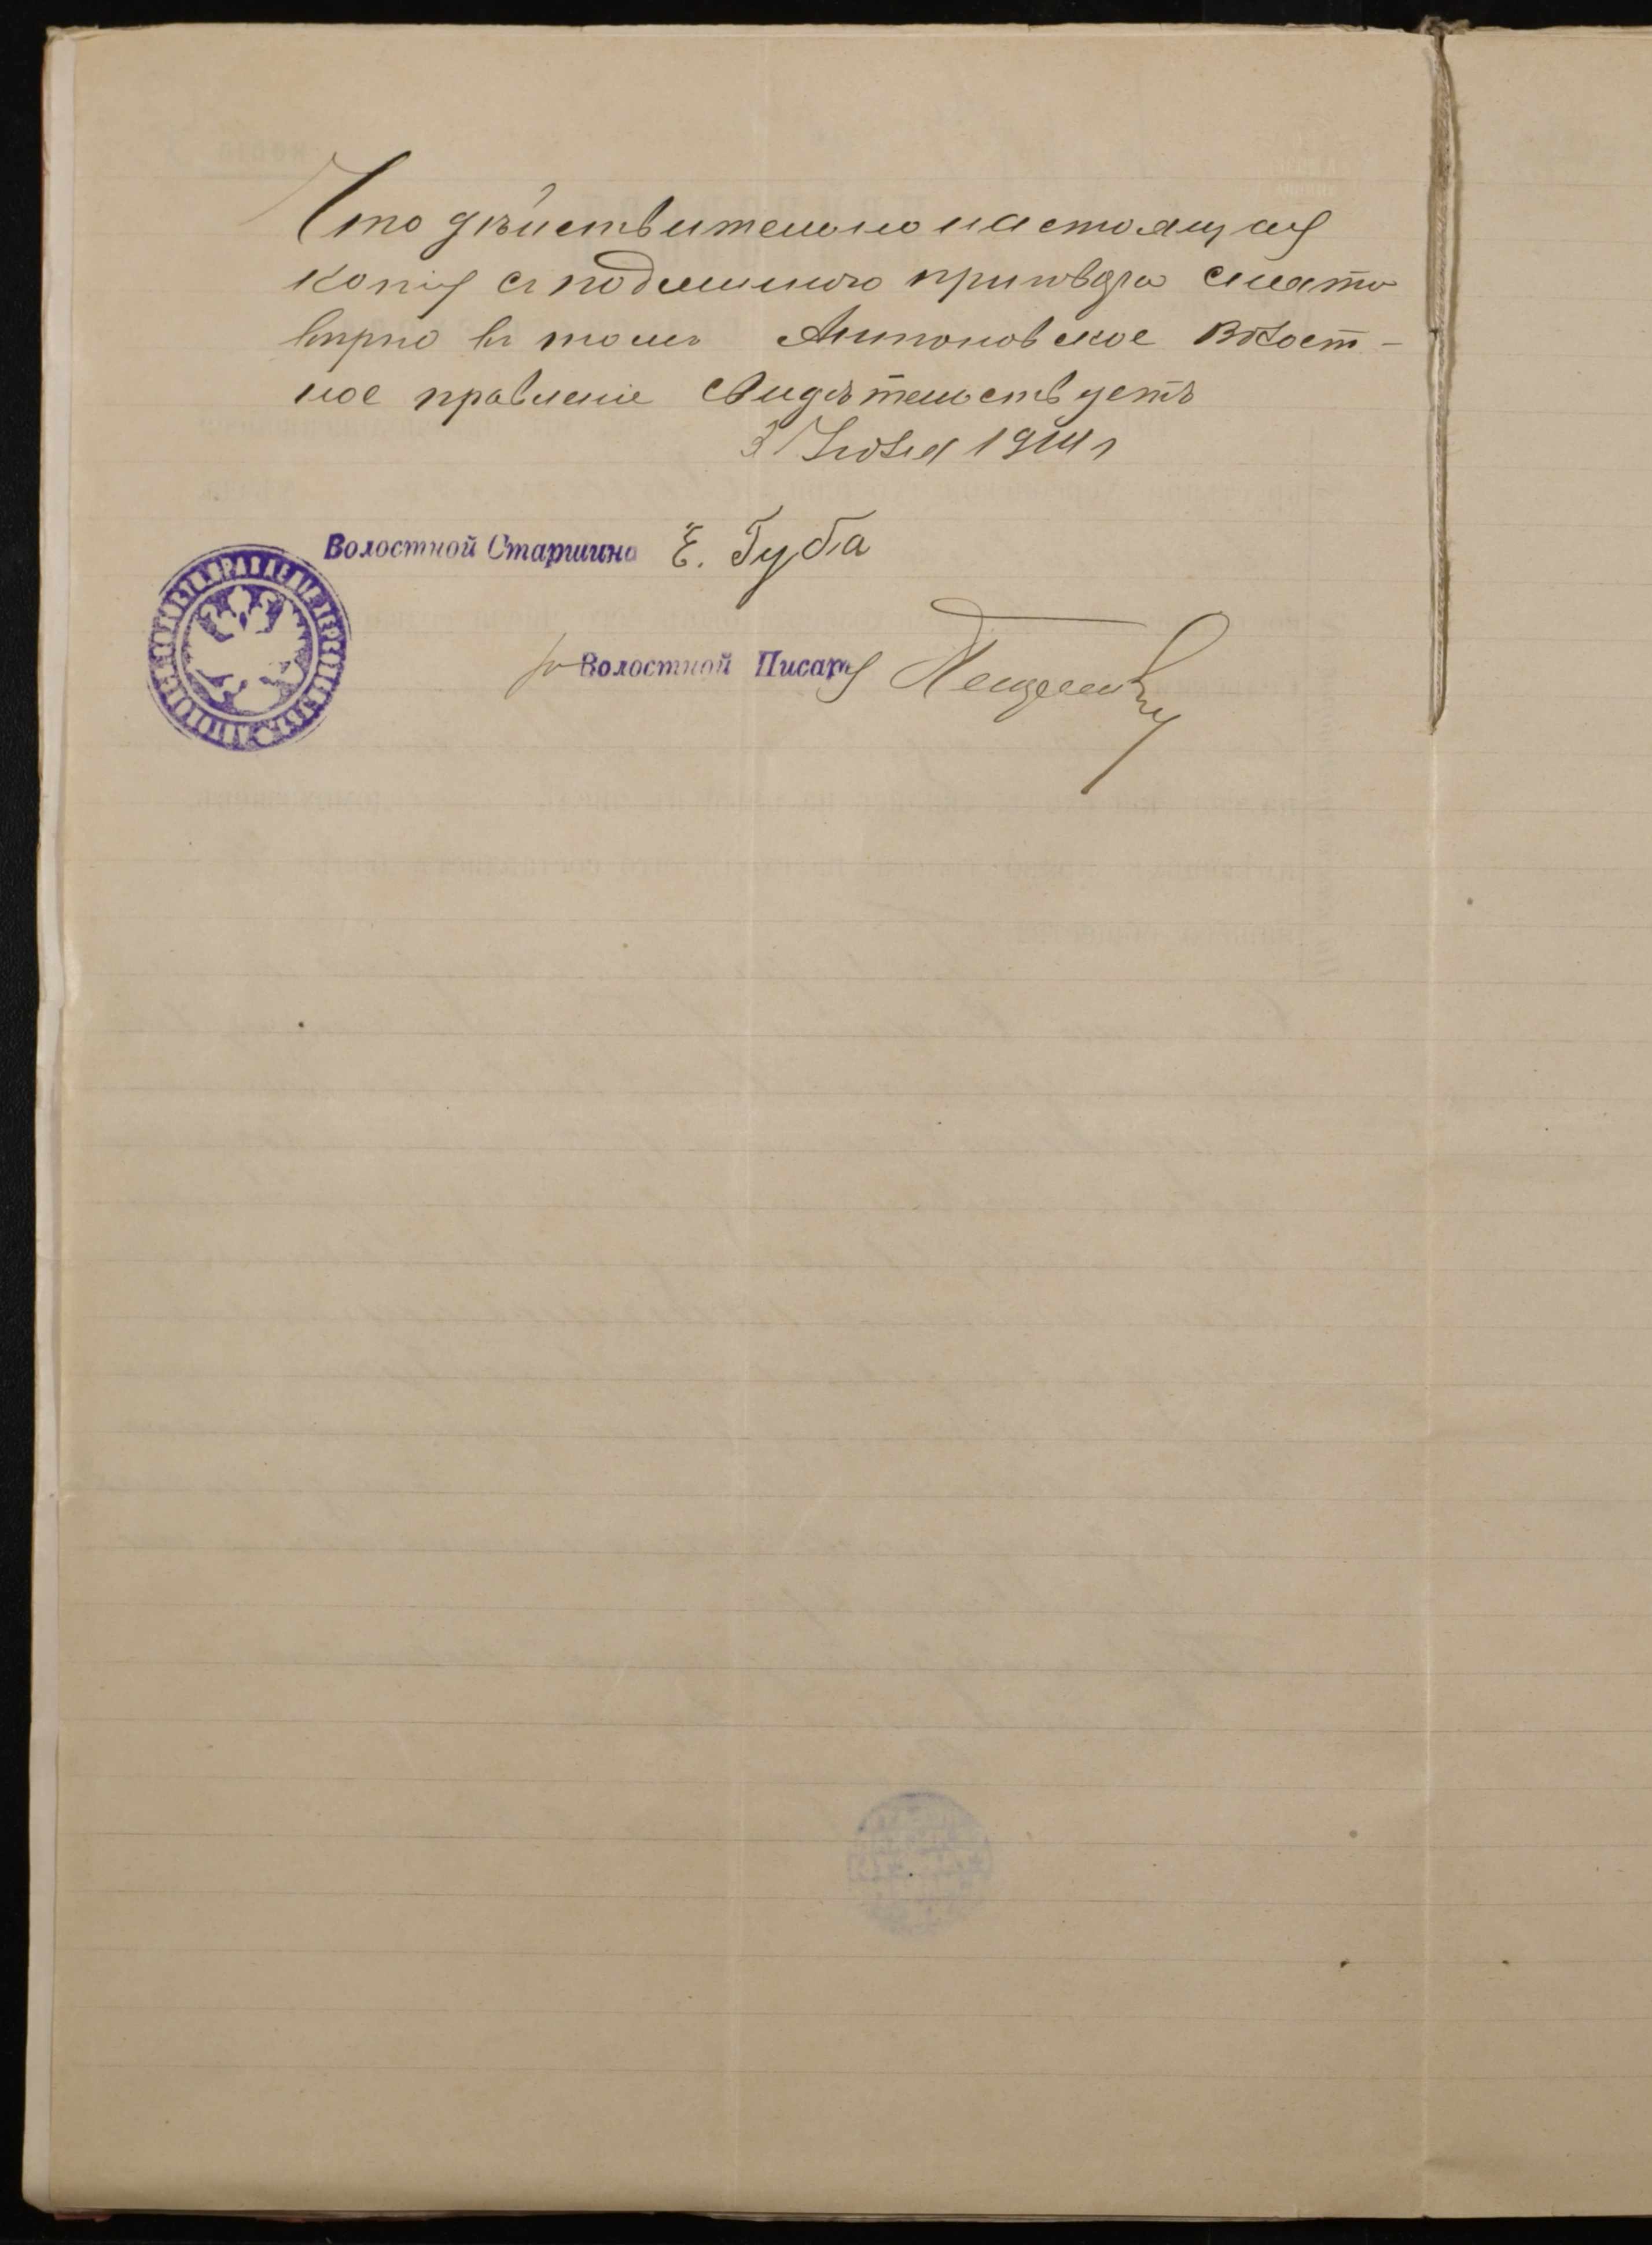 Что дѣйствительно настоящая
копія съ подлиннаго приговора снята
вѣрно въ томъ Антоновское Волост-
ное правленіе свидѣтельствуетъ
3 Іюля 1914 г
Волостной Старшина Е. Губа
Волостной Писарь